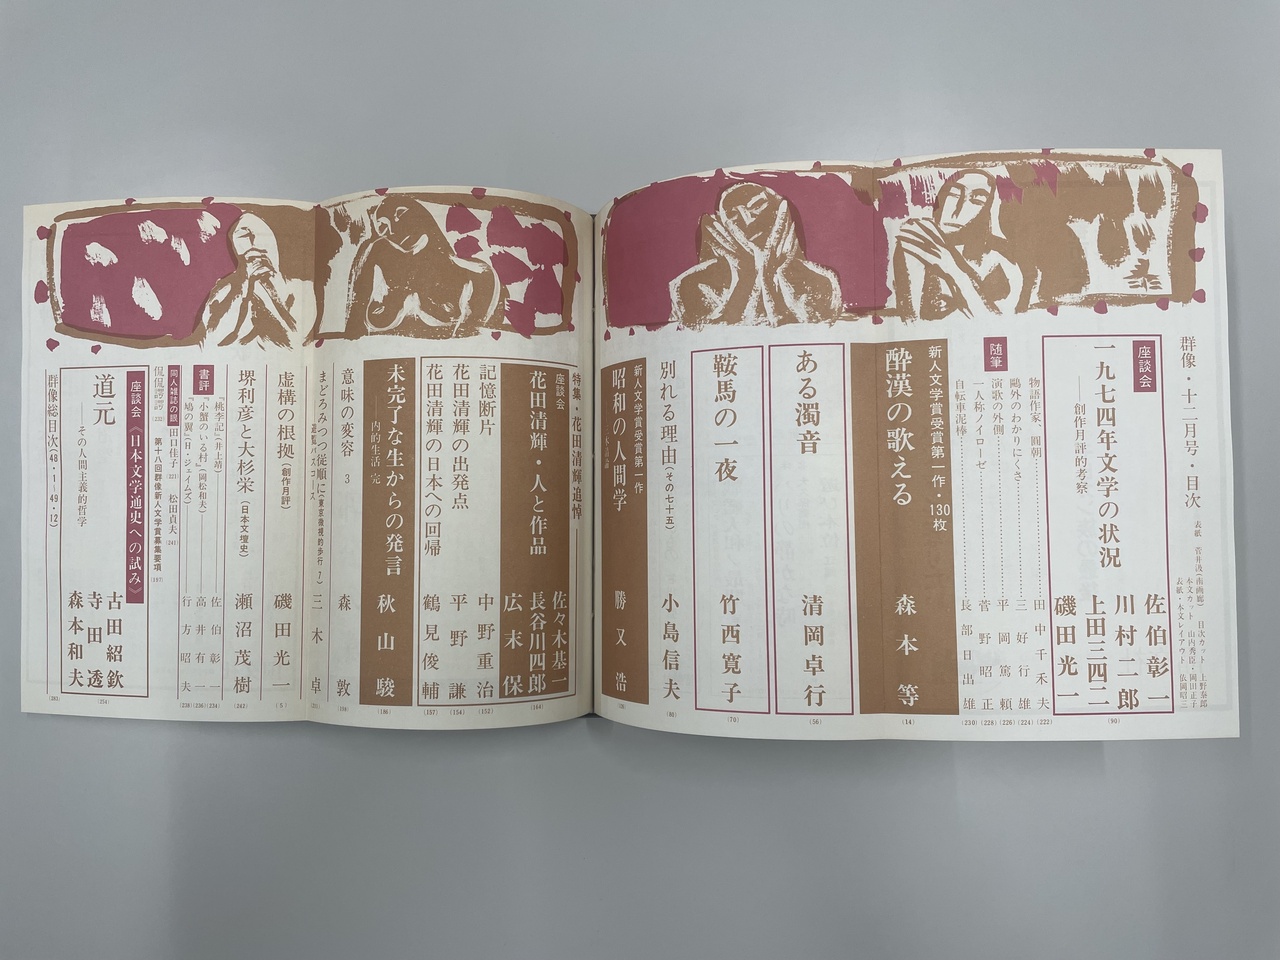 群像・十二月号・目次
表紙　菅井汲(南画廊)　目次カット　上野泰郎
本文カット　山内秀臣・岡田正子
表紙・本文レイアウト　依岡昭三
座談会
一九七四年文学の状況
――創作月評的考察
佐伯彰一
川村二郎
上田三四二
磯田光一
(90)
随筆
物語作家、圓朝
田中千禾夫
(222)
鷗外のわかりにくさ
三好行雄
(224)
演歌の外側
平岡篤頼
(226)
一人称ノイローゼ
菅野昭正
(228)
自転車泥棒
長部日出雄
(230)
新人文学賞受賞第一作・130枚
酔漢の歌える
森本等
(14)
ある濁音
清岡卓行
(56)
鞍馬の一夜
竹西寛子
(70)
別れる理由(その七十五)
小島信夫
(80)
新人文学賞受賞第一作
昭和の人間学
勝又浩
特集・花田清輝追悼
座談会
花田清輝・人と作品
佐々木基一
長谷川四郎
広末保
(164)
記憶断片
中野重治
(152)
花田清輝の出発点
平野謙
(154)
花田清輝の日本への回帰
鶴見俊輔
(157)
未完了な生からの発言
――内的生活 完
秋山駿
(180)
意味の変容 3
森敦
まどろみつつ従順に(東京微視的歩行 7)
遊覧バスコース
三木卓
虚構の根拠(創作月評)
磯田光一
(5)
堺利彦と大杉栄(日本文壇史)
瀬沼茂樹
(243)
書評
『桃李記』(井上靖)
佐伯彰一
(234)
『小蟹のいる村』(岡松和夫)
高井有一
(236)
『鳩の翼』(H・ジェイムズ)
行方昭夫
(238)
同人雑誌の眼
田口佳子(221)　松田貞夫(241)
侃侃諤諤(232)
第十八回群像新人文学賞募集要項(187)
座談会《日本文学通史への試み》
道元
――その人間主義的哲学
古田紹欽
寺田透
森本和夫
(254)
群像総目次(48・1～49・12)